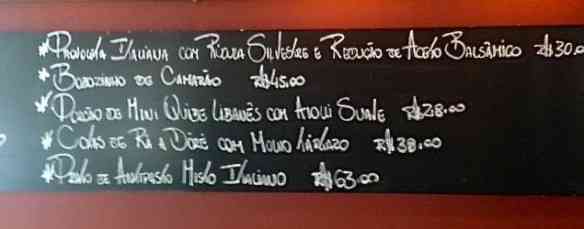 * Provoleta Italiana com Rúcula Silvestre e Redução de Aceto Balsâmico R$30.0
* Bobozinho de Camarão R$45.00
* Porção de Mini Quibe Libanês com Aioli Suave R$28.00
* Coxas de Rã a Dorê com Molho Tártaro R$38.00
* Prato de Antipasto Misto Italiano R$63.00